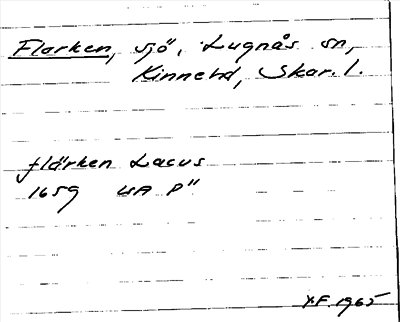 Flarken, sjö, Lugnås sn,
Kinnehd, Skar. l.
flärken Lacus
1659 UA P"
Y.F. 1965